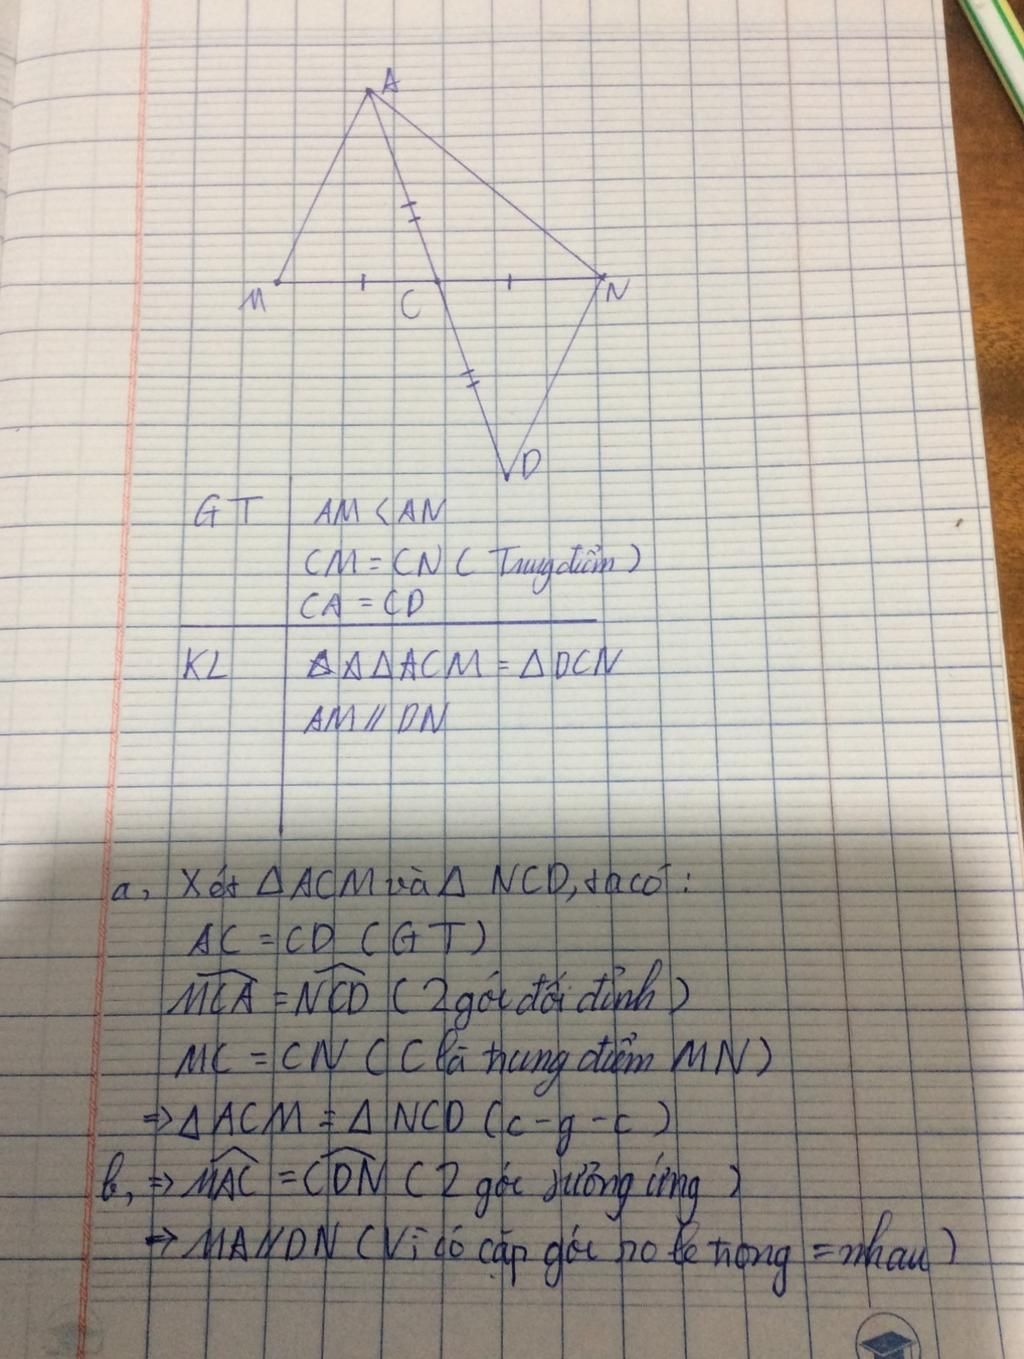 A
M
C
N
D
GT
AM < AN
CM = CN ( Trung điểm )
CA = CD
KL
ΔACM = ΔDCN
AM // DN
a, Xét Δ ACM và Δ NCD, ta có :
AC = CD ( GT )
MCA = NCD ( 2 góc đối đỉnh )
MC = CN ( C là trung điểm MN )
⇒ Δ ACM = Δ NCD ( c-g-c )
b, ⇒ MAC = CDN ( 2 góc tương ứng )
⇒ MA // DN ( Vì có cặp góc so le trong = nhau )